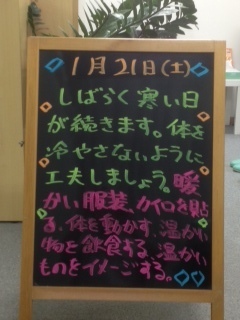 1月21日(土)
しばらく寒い日
が続きます。体を
冷やさないように
工夫しましょう。暖
かい服装、カイロを貼
る、体を動かす、温かい
物を飲食する、温かい
ものをイメージする。